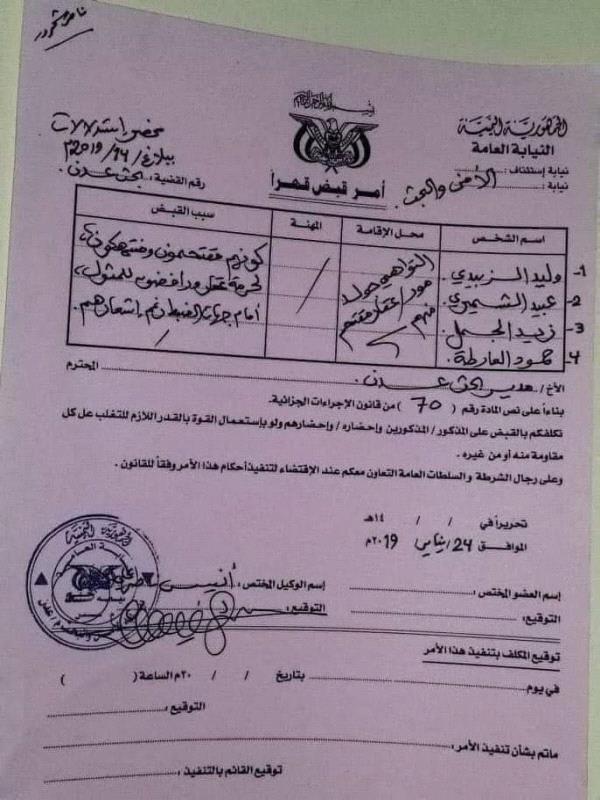 الجمهورية اليمنية
النيابة العامة
نيابة إستئناف :
نيابة : الأمن والبحث .
بسم الله الرحمن الرحيم
أمر قبض قهراً
محضر استدلالات
بلاغ / 14 / 2019م
رقم القضية : بحث عدن .
اسم الشخص
محل الإقامة
المهنة
سبب القبض
1- وليد الزبيدي .
2- عبيد الشميري .
3- زيد الجمل .
4- حمود العارطة .
التواهي جولد
مور / عقار مقتحم
منهم
كونهم مقتحمون ومنتهكون
لحرمة عقار ورافضون للمثول
أمام جهات الضبط رغم إشعارهم .
الأخ / مدير بحث عدن . المحترم
بناءاً على نص المادة رقم ( 70 ) من قانون الإجراءات الجزائية .
تكلفكم بالقبض على المذكور / المذكورين وإحضاره / وإحضارهم ولو بإستعمال القوة بالقدر اللازم للتغلب عل كل
مقاومة منه أو من غيره .
وعلى رجال الشرطة و السلطات العامة التعاون معكم عند الإقتضاء لتنفيذ أحكام هذا الأمر وفقاً للقانون .
تحريراً في / / ١٤هـ
الموافق 24 / يناير / 2019م
إسم العضو المختص :
إسم الوكيل المختص : أنيس
التوقيع :
التوقيع :
توقيع المكلف بتنفيذ هذا الأمر
في يوم بتاريخ / / ٢٠م الساعة ( )
التوقيع :
ماتم بشأن تنفيذ الأمر :
توقيع القائم بالتنفيذ :